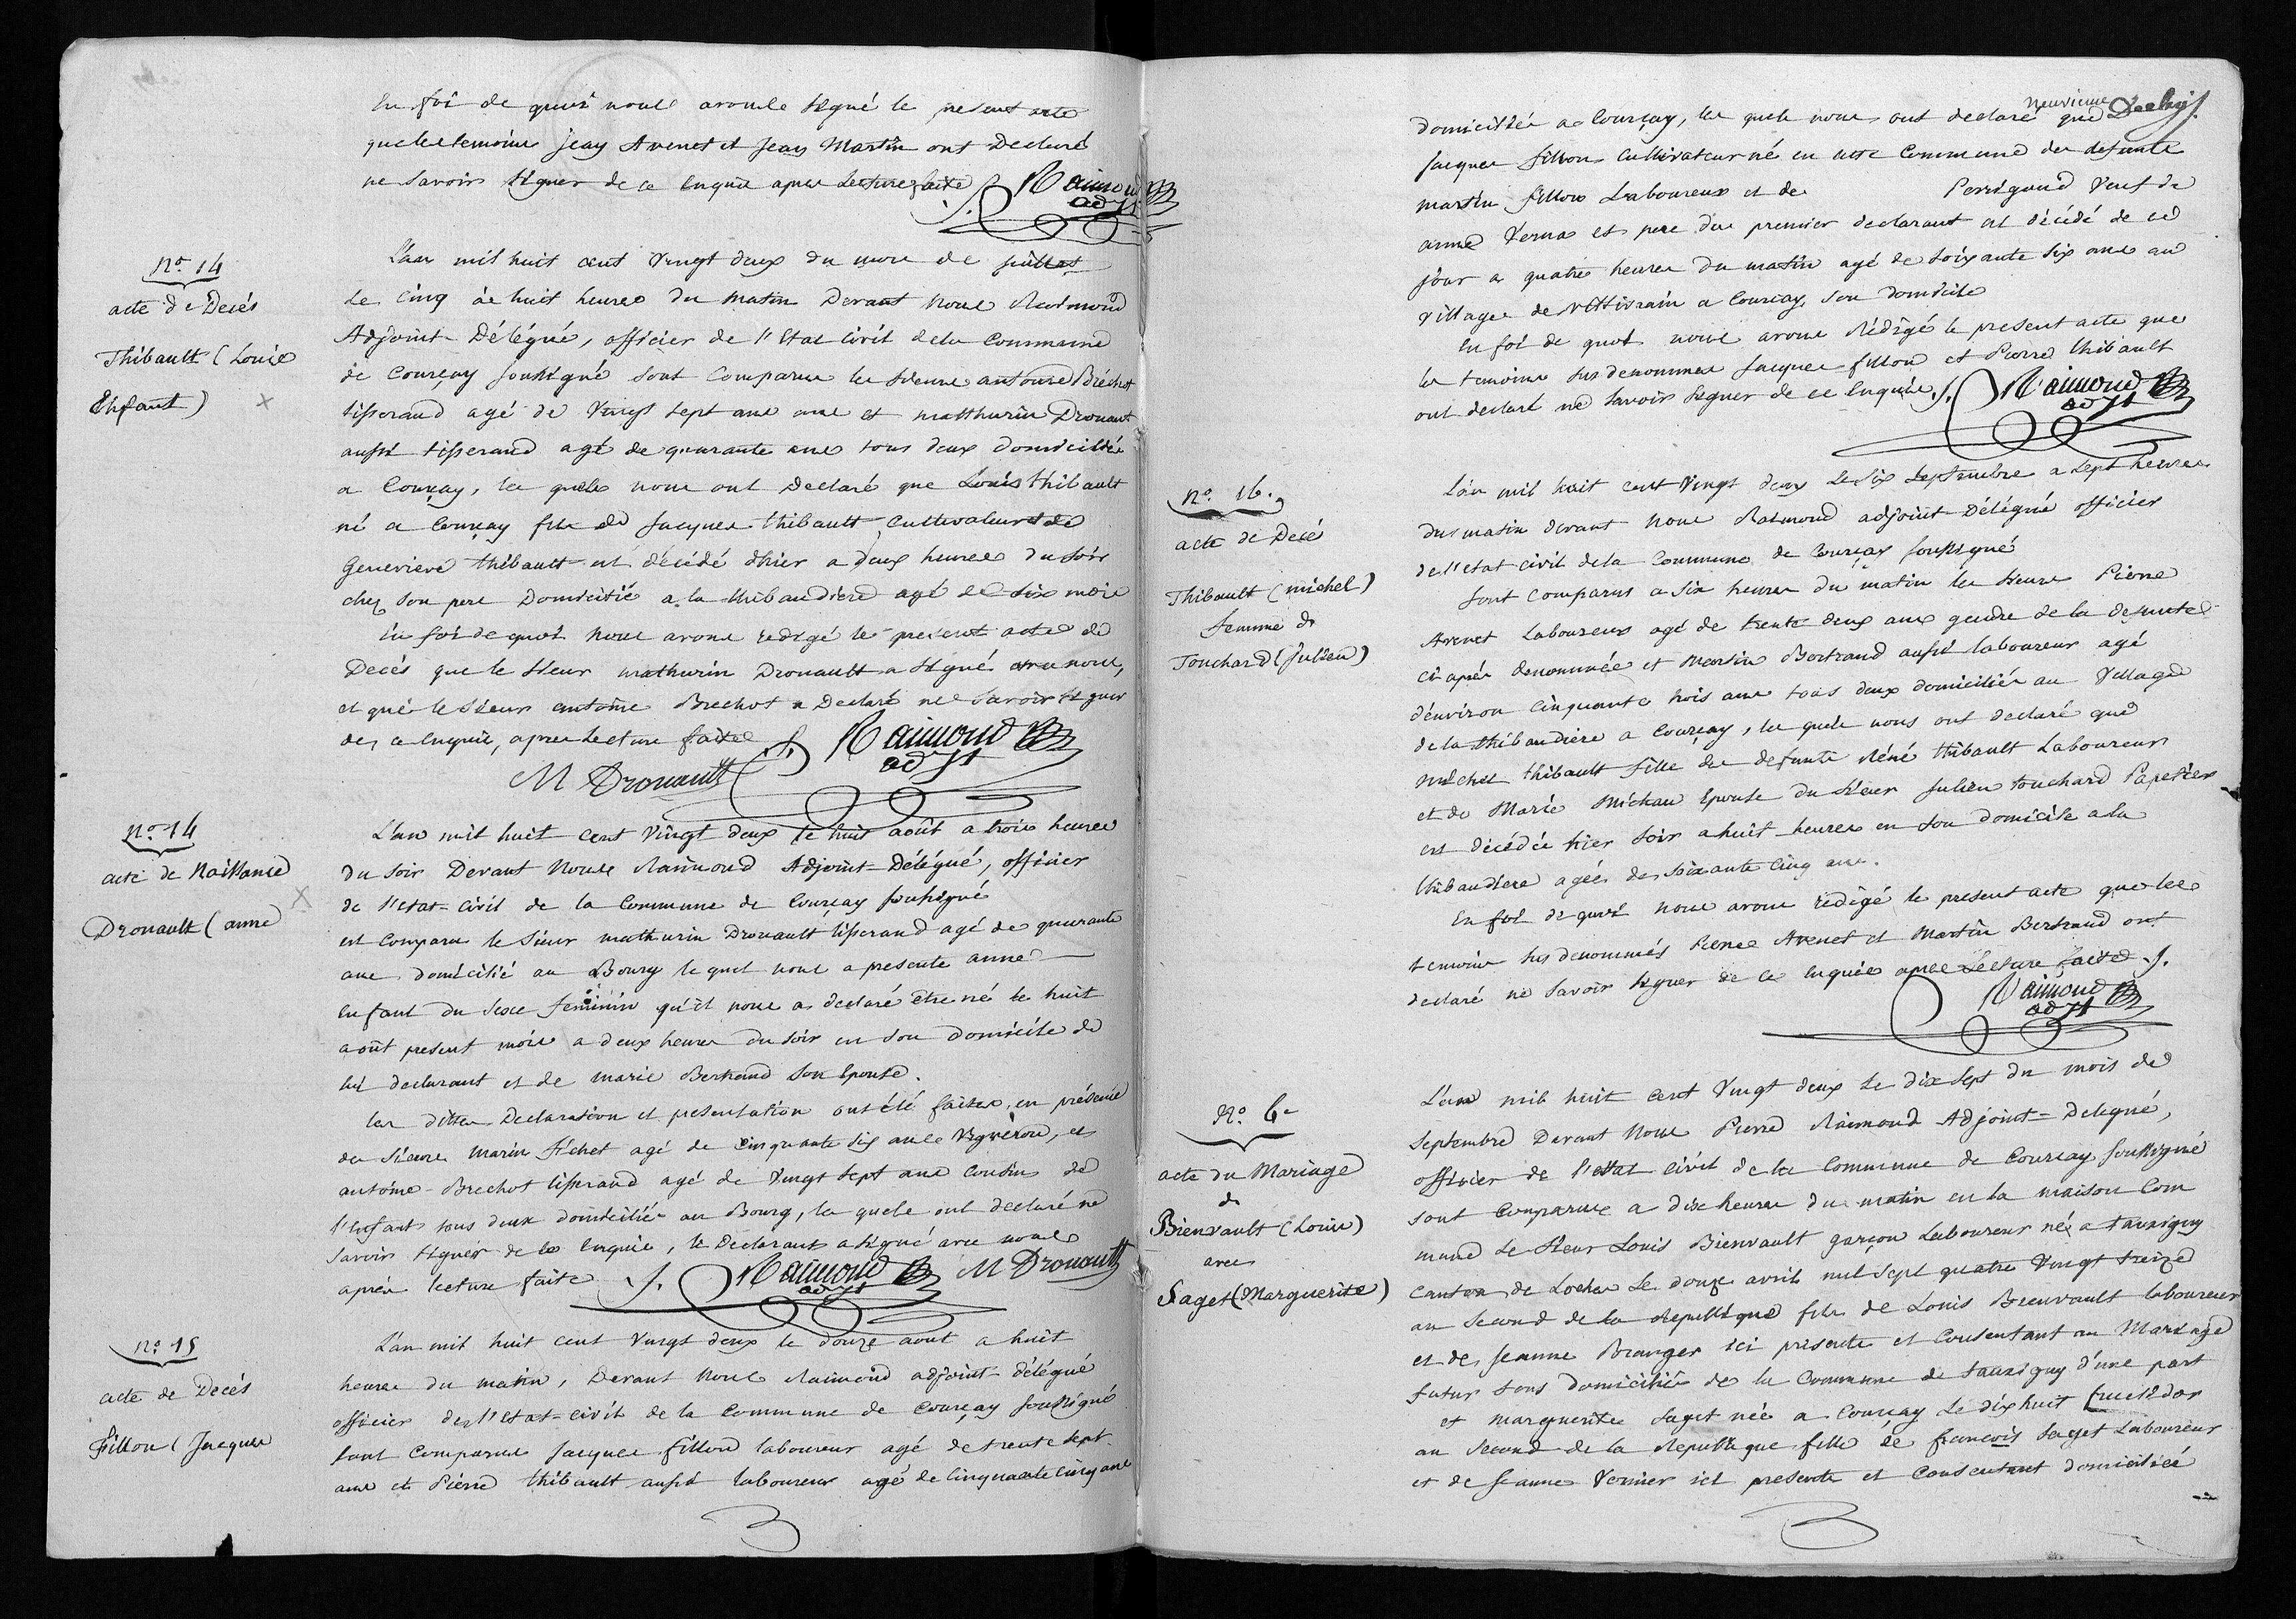 En foi de quoi nous avons signé le présent acte
que les temoins Jean Avenet et Jean Martin ont Declaré
ne Savoir Signer de ce Enquis apres Lecture faite ./. Raimond
adjt
No. 14
acte de Decés
Thibault (Louis
Enfant)
L'an mil huit cent Vingt deux du mois de juillet
Le cinq à huit heures du matin Devant Nous Raimond
Adjoint-Délégué, officier de l'Etat Civil de la Commune
de Courçay soussigné sont Comparus les Sieurs antoine Bréchot
tisserand agé de Vingt sept ans ans et matthurin Drouault
aussi tisserand agé de quarante ans tous deux domiciliés
a Courçay, les quels nous ont Declaré que Louis thibault
né a Courçay fils de Jacques thibault Cultivateur et de
Genevieve thibault est décédé d'hier a deux heures du soir
chez son pere Domicilié a la thibaudiere agé de six mois
En foi de quoi Nous avons redigé le present acte de
Decés que le Sieur mathurin Drouault a Signé avec nous,
et que le Sieur antoine Brechot a Declaré ne Savoir Signer
de ce Enquis, apres Lecture faite ./. Raimond
adjt
M Drouault
no. 14
acte de Naissance
Drouault (anne
L'an mil huit Cent Vingt deux le huit août a trois heures
du soir Devant Nous Raimond Adjoint-Délégué, officier
de l'etat-civil de la Commune de Courçay soussigné
est Comparu le Sieur mathurin Drouault tisserand agé de quarante
ans domicilié au Bourg lequel nous a presenté anne
Enfant du Sexe féminin qu'il nous a declaré être né le huit
août present mois a deux heures du soir en son domicile de
lui declarant et de marie Bertrand son Epouse.
les dittes Declaration et presentation ont été faites, en présence
des Sieurs Marin Féchet agé de Cinquante Six ans Vigneron, et
antoine Brechot tisserand agé de Vingt sept ans Cousin de
l'enfant tous deux domiciliés au Bourg, les quels ont declaré ne
Savoir Signer de ce Enquis, le Declarant a signé avec nous
après lecture faite ./. Raimond M Drouault
adjt
no. 15
acte de Decés
Fillon (Jacques
L'an mil huit cent Vingt deux le douze aout a huit
heures du matin, Devant Nous Raimond adjoint-délégué
officier de l'Etat-civil de la Commune de Courçay soussigné
sont Comparus Jacques fillon laboureur agé de trente sept
ans et Pierre thibault aussi laboureur agé de Cinquante Cinq ans
neuvieme
domiciliés a Courçay, les quels nous ont declaré que
Jacques fillon Cultivateur né en cette Commune de defunts
martin fillon Laboureur et de Perrigaud Veuf de
anne Vernas et pere du premier declarant est décédé de ce
jour a quatre heures du matin agé de soixante six ans au
Village de a Courçay, son domicile
En foi de quoi nous avons rédigé le present acte que
les temoins susdenommés Jacques fillon et Pierre thibault
ont declaré ne savoir signer de ce Enquis ./. Raimond
adjt
no. 16.
acte de Decé
Thibault (michel)
femme de
Touchard (Julien)
L'an mil huit cent Vingt deux Le Six Septembre a sept heures
du matin devant Nous Raimond adjoint-Délégué officier
de l'etat civil de la Commune de Courçay soussigné
sont comparus a six heures du matin les Sieurs Pierre
Avenet Laboureur agé de trente deux ans gendre de la defunte
ci après denommée et Martin Bertrand aussi laboureur agé
d'environ Cinquante trois ans tous deux domiciliés au Village
de la thibaudiere a Courçay, les quels nous ont declaré que
michel thibault fille de defunts Réné thibault Laboureur
et de Marie Michau Epouse du Sieur Julien touchard Papetier
est décédée hier soir a huit heures en son domicile a la
thibaudiere agée de soixante Cinq ans.
En foi de quoi nous avons rédigé le present acte que les
temoins susdenommés Pierre Avenet et Martin Bertrand ont
declaré ne Savoir Signer de ce Enquis après Lecture faite ./.
Raimond
adjt
No. 6e
acte du Mariage
de
Bienvault (Louis)
avec
Saget (Marguerite)
L'an mil huit cent Vingt deux Le dix Sept du mois de
Septembre Devant Nous Pierre Raimond Adjoint-Delegué,
officier de l'etat civil de la Commune de Courçay soussigné
sont Comparus a dix heures du matin en la maison Com
mune le Sieur Louis Bienvault garçon Laboureur né a tauxigny
canton de Loches Le douze avril mil sept quatre Vingt treize
an Second de la Republique fils de Louis Bienvault laboureur
et de Jeanne Branger ici présente et Consentant au Mariage
futur tous domiciliés de la Commune de tauxigny d'une part
et marguerite Saget née a Courçay Le dix huit fructidor
an Second de la Republique fille de françois Saget Laboureur
et de Jeanne Vernier ici presente et Consentant domiciliés